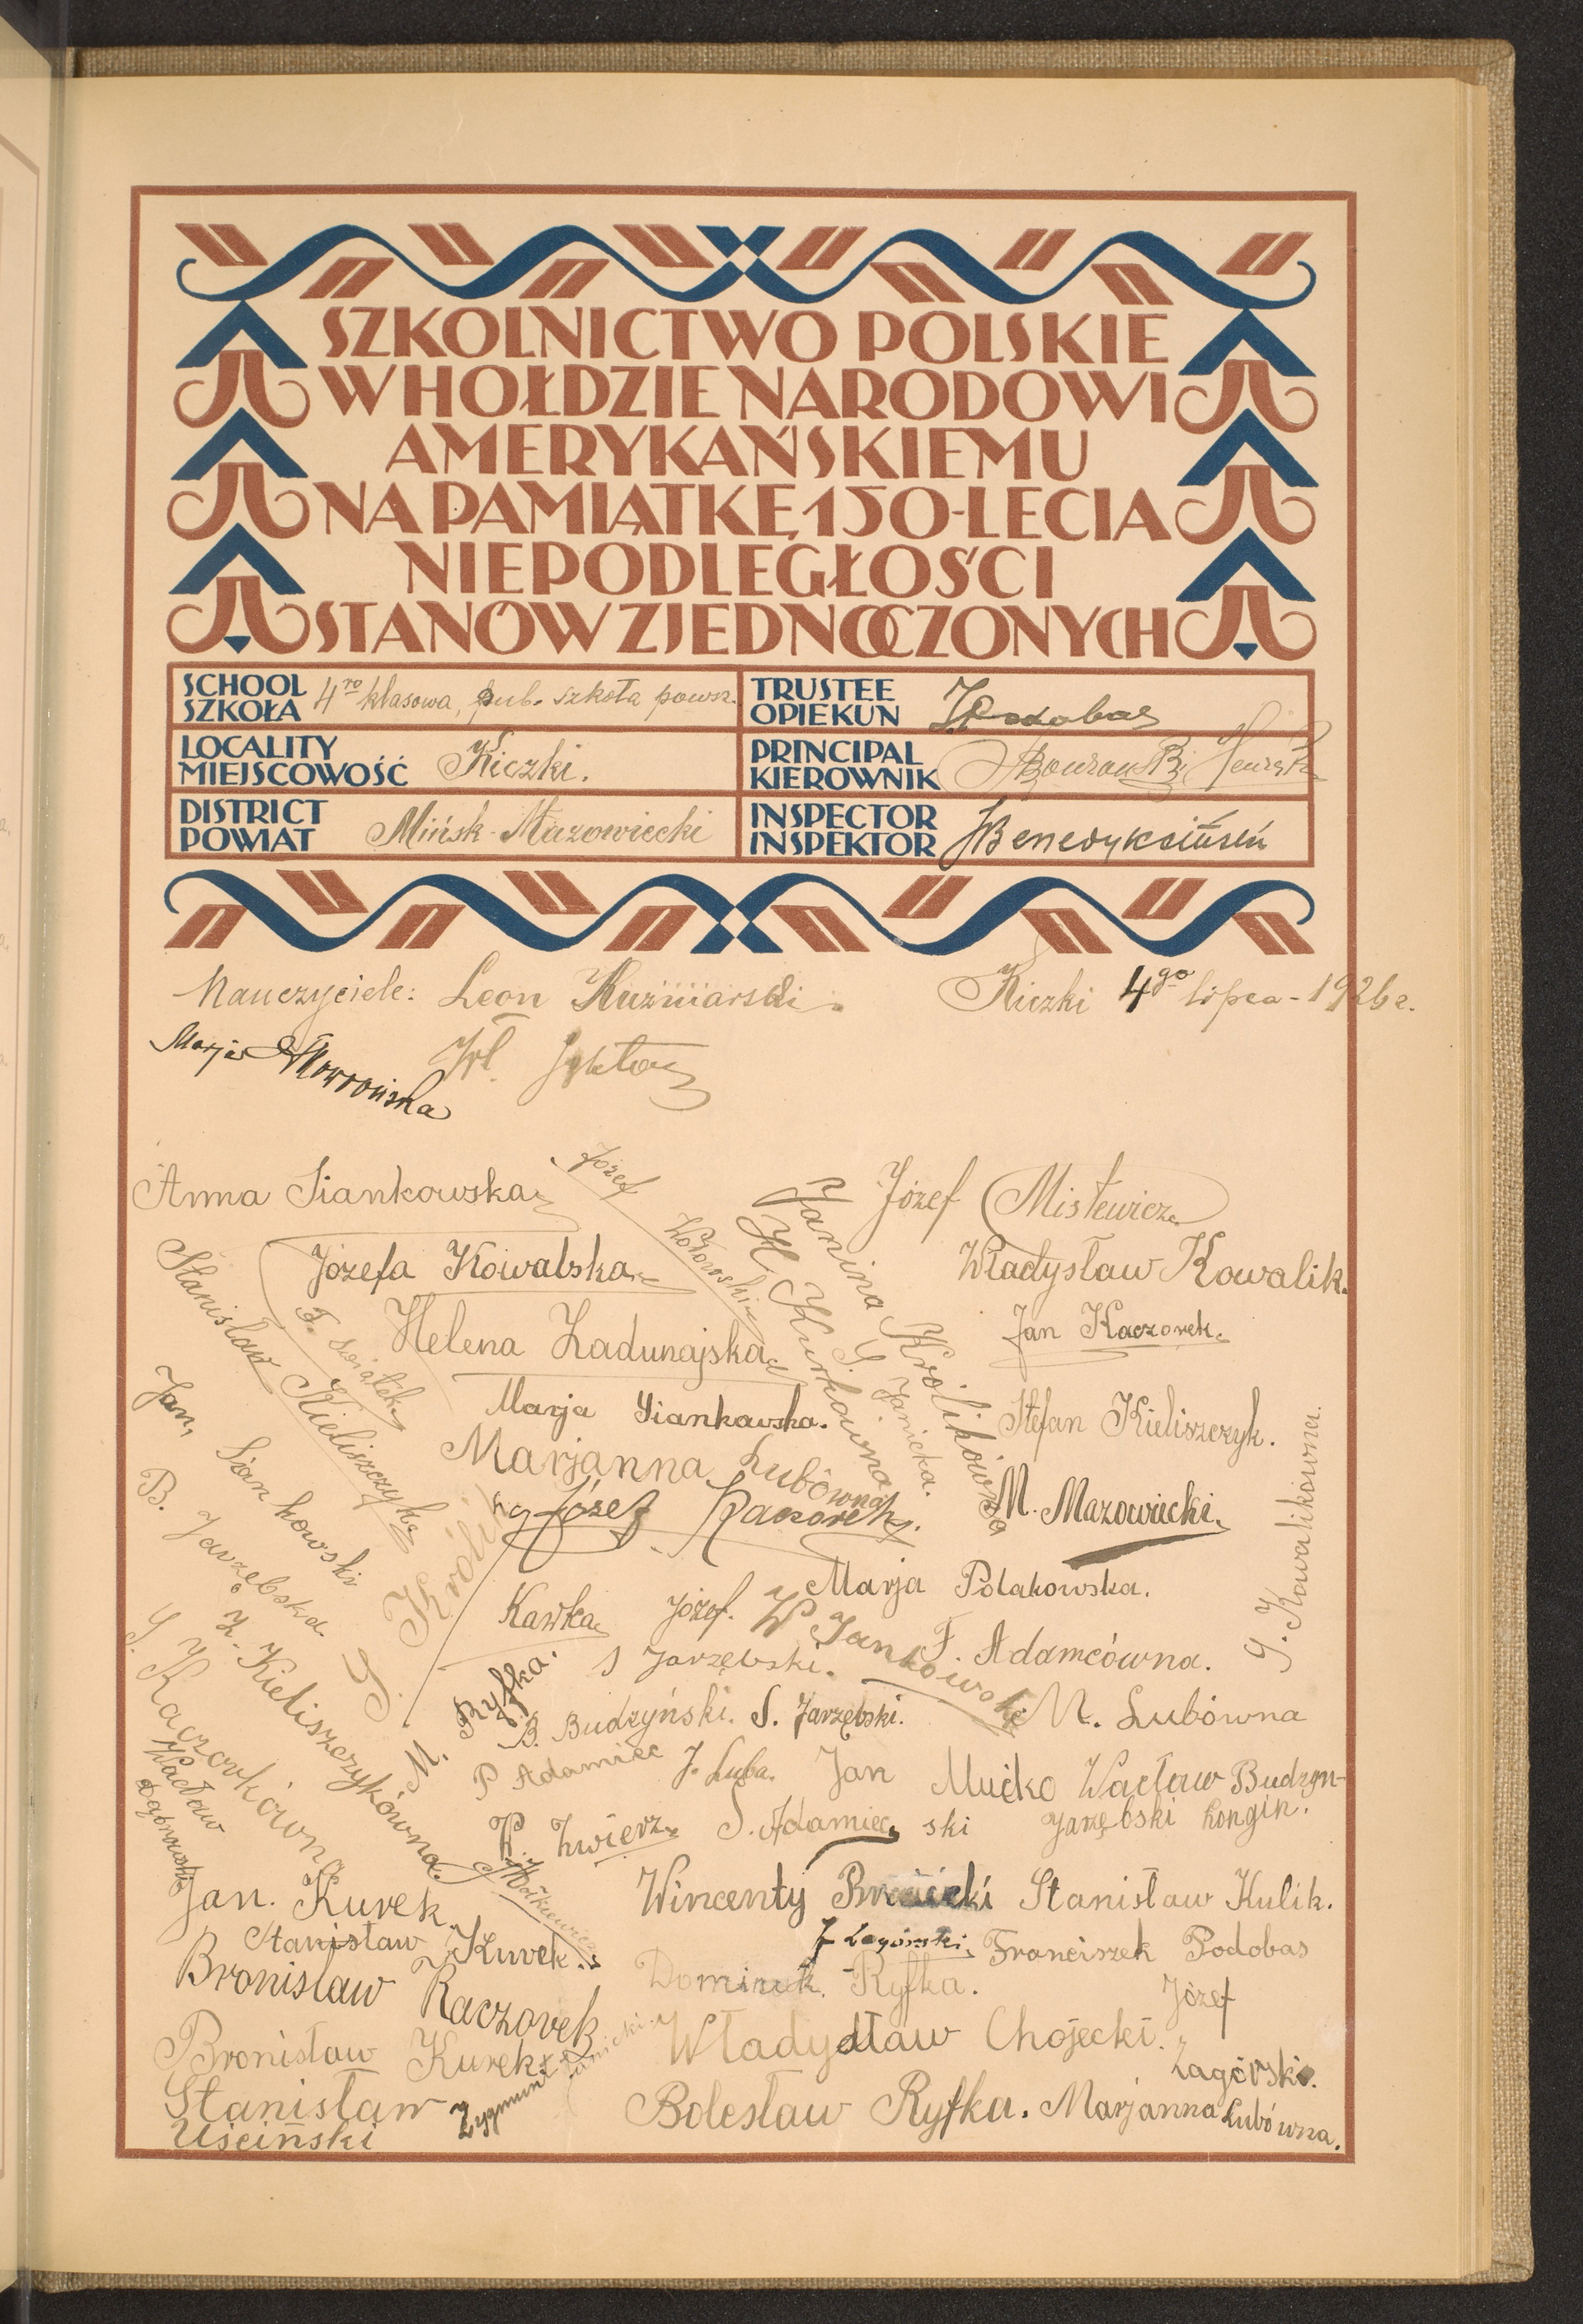 SZKOLNICTWO POLSKIE
W HOŁDZIE NARODOWI
AMERYKAŃSKIEMU
NA PAMIĄTKĘ 150-LECIA
NIEPODLEGŁOŚCI
STANÓW ZJEDNOCZONYCH
SCHOOL
SZKOŁA
4ro klasowa, pub. szkoła powsz.
TRUSTEE
OPIEKUN
LOCALITY
MIEJSCOWOŚĆ
Kiczki.
PRINCIPAL
KIEROWNIK
DISTRICT
POWIAT
Mińsk-Mazowiecki
INSPECTOR
INSPEKTOR
Nauczyciele: Leon Kuźniarski.
Kiczki 4go lipca - 1926 r.
Marja
Wł.
Anna Siankowska
Józef
Józef Mistewicz
Józefa Kowalska
Władysław Kowalik.
Janina Królikówna
H. Kurkówna
Stanisław Kieliszczyk
F. Świątek
Helena Zadunajska
Jan Kaczorek.
G. Janicka.
Marja Siankowska.
Stefan Kieliszczyk.
Jan Siankowski
Marjanna Lubówna
Józef Kaczorek
M. Mazowiecki.
B. Jarzębska
Królik
Marja Polakowska.
J. Kowalikówna.
Kawka Józef.
W. Jankowski
F. Adamcówna.
S Jarzębski.
Z. Kieliszczykówna.
Kaczorkówna
Ryfka.
B. Budzyński. S. Jarzębski.
M. Lubówna
P Adamiec J. Luba. Jan Mućko Wacław Budzyn-
ski
Wacław Dąbrowski
K. Zwierz
S. Adamiec
Jarzębski Longin.
Jan. Kurek.
Wincenty
Stanisław Kulik.
Stanisław Kurek.
J Zagórski
Franciszek Podobas
Bronisław Kaczorek
Dominik. Ryfka.
Józef Zagórski.
Bronisław Kurek
Władysław Chojecki.
Zygmunt Janicki
Stanisław
Uściński
Bolesław Ryfka. Marjanna Lubówna.